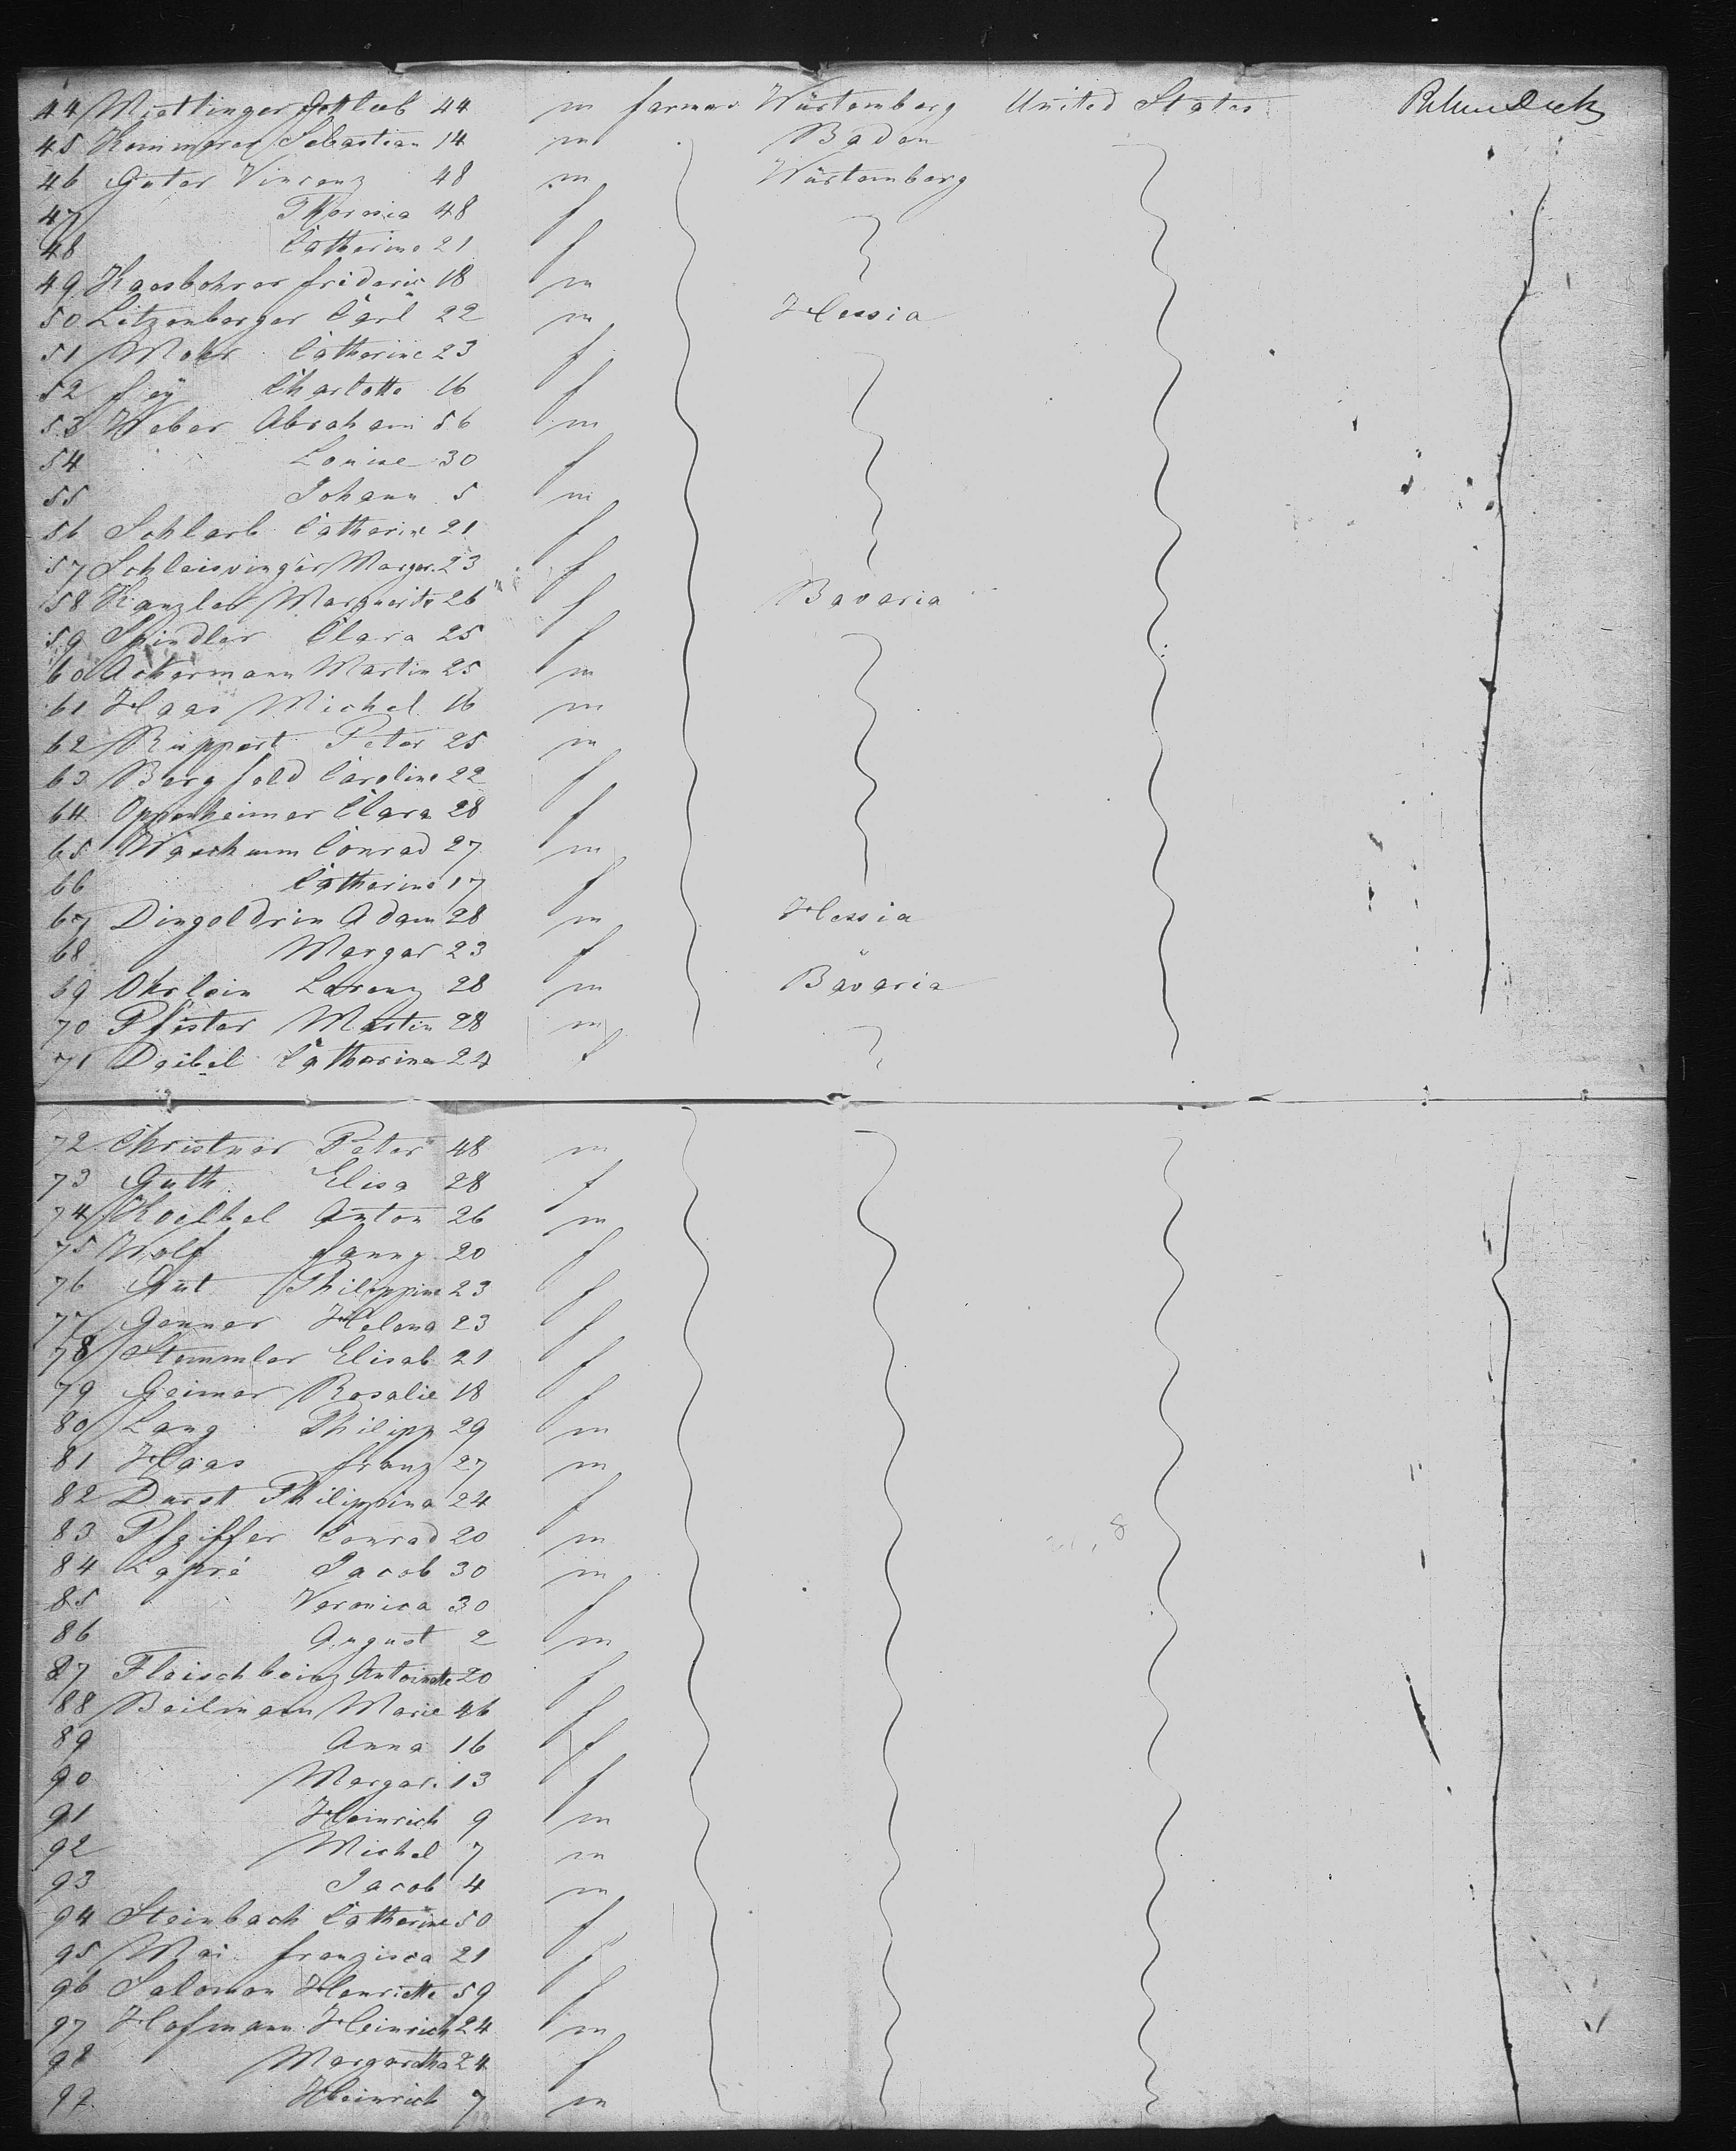 44 Miettinger Gottlieb 44 m farmer Würtemberg United States
45 Kemmerer Sebastian 14 m Baden
46 Guter Vincenz 48 m Würtemberg
47 Theresia 48 f
48 Catherine 21 f
49 Kaesbohrer frideric 18 m
50 Litzenberger Carl 22 m Hessia
51 Mohr Catherine 23 f
52 fey Charlotte 16 f
53 Weber Abraham 56 m
54 Louise 30 f
55 Johann 5 m
56 Schlarb Catherine 21 f
57 Schleisvinger Marger. 23 f
58 Kanzler Marguerite 26 f Bavaria
59 Spindler Clara 25 f
60 Ackermann Martin 25 m
61 Haas Michel 16 m
62 Ruppert Peter 25 m
63 Bergfeld Caroline 22 f
64 Oppenheimer Clara 28 f
65 Waschumm Conrad 27 m
66 Catherine 17 f
67 Dingeldrin Adam 28 m Hessia
68 Margar 23 f
69 Ohrlein Lorenz 28 m Bavaria
70 Pfister Martin 28 m
71 Deibel Catherine 24 f
72 Christner Peter 48 m
73 Guth Elisa 28 f
74 Koelbel Anton 26 m
75 Wolf fanny 20 f
76 Gut Philippine 23 f
77 Genner Helena 23 f
78 Stemmler Elisab 21 f
79 Geimer Rosalie 18 f
80 Lang Philipp 29 m
81 Haas franz 27 m
82 Durst Philippina 24 f
83 Pfeiffer Conrad 20 m
84 Lapré Jacob 30 m
85 Veronica 30 f
86 August 2 m
87 Fleischbeinz Antoinette 20 f
88 Beilmann Marie 46 f
89 Anna 16 f
90 Margar. 13 f
91 Heinrich 9 m
92 Michel 7 m
93 Jacob 4 m
94 Steinbach Catherine 50 f
95 Mai franzisca 21 f
96 Salomon Henriette 59 f
97 Hofmann Heinrich 24 m
98 Margaretha 24 f
99 Heinrich 7 m